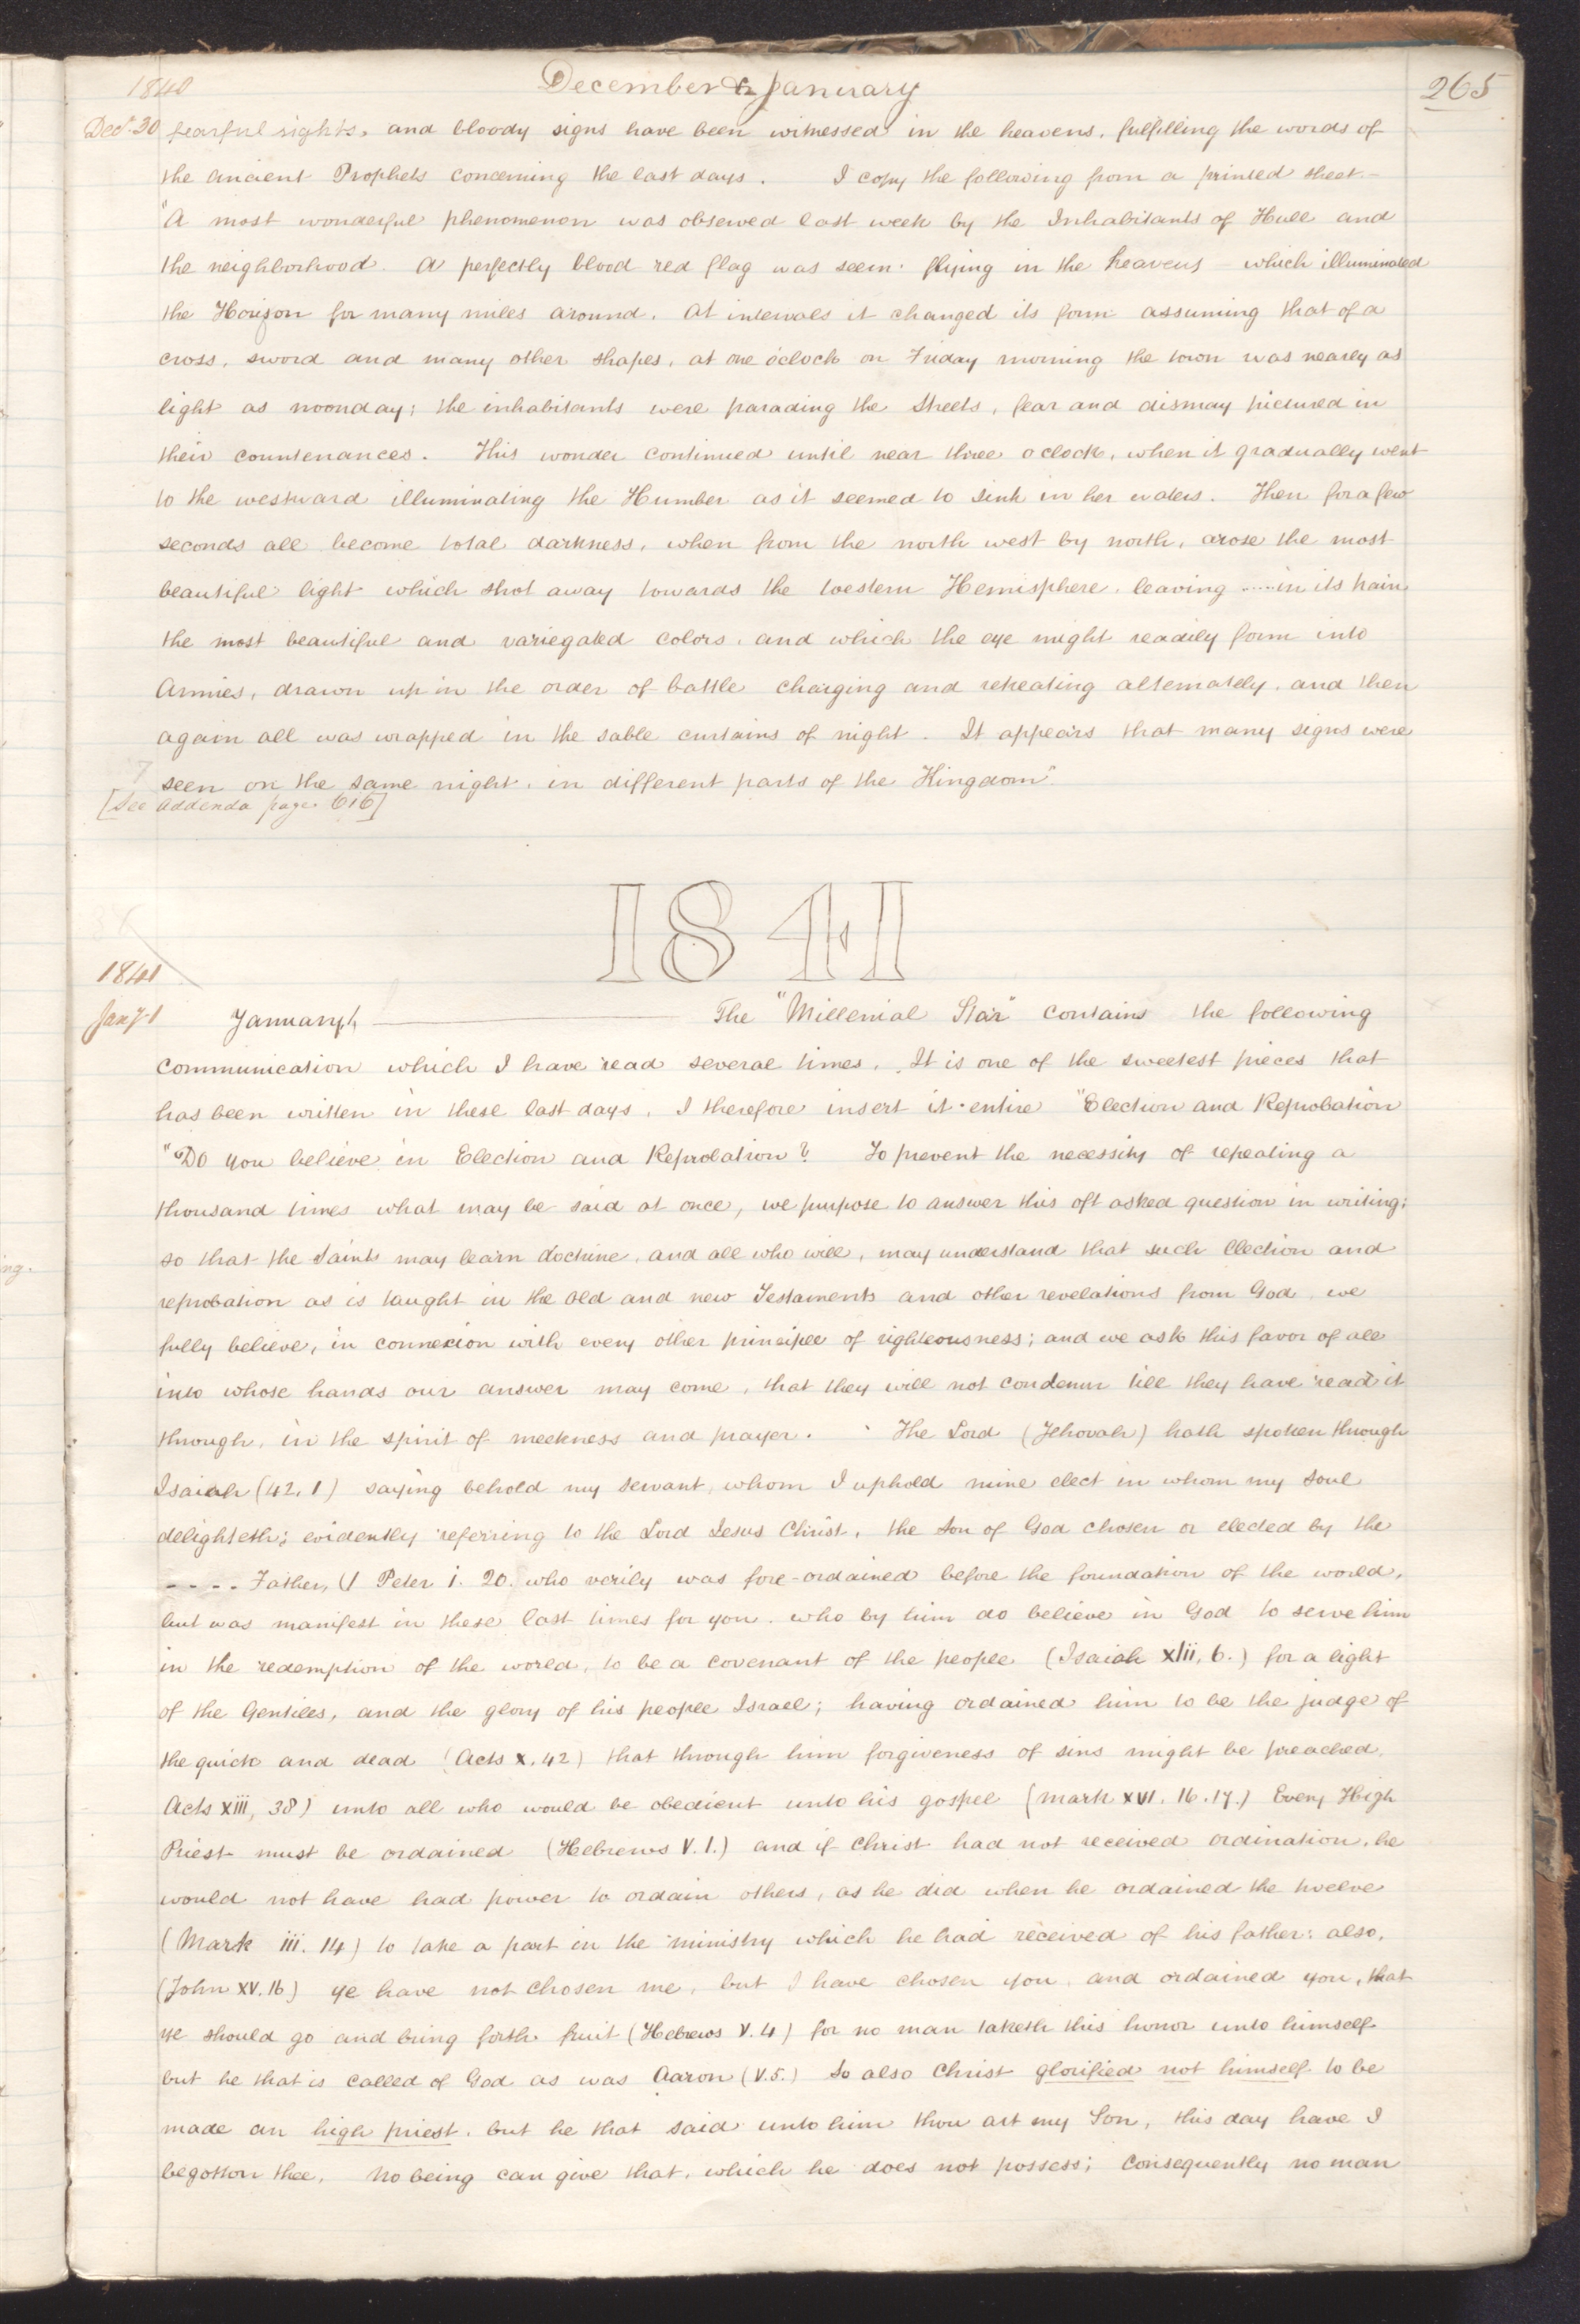 1840 December & January 265
Decr. 30 fearful sights, and bloody signs have been witnessed in the heavens, fulfilling the words of
the ancient Prophets concerning the last days. I copy the following from a printed sheet-
"A most wonderful phenomenon was observed last week by the Inhabitants of Hull and
the neighborhood. A perfectly blood red flag was seen flying in the heavens which illuminated
the Horizon for many miles around. At intervals it changed its form assuming that of a
cross, sword and many other shapes, at one o'clock on Friday morning the town was nearly as
light as noonday; the inhabitants were parading the Streets, fear and dismay pictured in
their countenances. This wonder continued until near three o clock, when it gradually went
to the westward illuminating the Humber as it seemed to sink in her waters. Then for a few
seconds all become total darkness, when from the north west by north, arose the most
beautiful light which shot away towards the Western Hemisphere, leaving ..... in its train
the most beautiful and variegated colors, and which the eye might readily form into
Armies, drawn up in the order of battle charging and retreating alternately, and then
again all was wrapped in the sable curtains of night. It appears that many signs were
seen on the same night, in different parts of the Kingdom"
[See addenda page 616]
1841
1841
Jany. 1 January 1, The "Millenial Star" contains the following
communication which I have read several times. It is one of the sweetest pieces that
has been written in these last days. I therefore insert it entire "Election and Reprobation
"Do you believe in Election and Reprobation? To prevent the necessity of repeating a
thousand times what may be said at once, we purpose to answer this oft asked question in writing;
so that the Saints may learn doctrine, and all who will, may understand that such Election and
reprobation as is taught in the old and new Testaments and other revelations from God, we
fully believe, in connexion with every other principle of righteousness; and we ask this favor of all
into whose hands our answer may come, that they will not condemn till they have read it
through, in the spirit of meekness and prayer. The Lord (Jehovah) hath spoken through
Isaiah (42, 1) saying behold my servant, whom I uphold mine elect in whom my soul
delighteth; evidently referring to the Lord Jesus Christ, the Son of God chosen or elected by the
- - - - Father, (1 Peter i. 20. who verily was fore-ordained before the foundation of the world,
but was manifest in these last times for you. who by him do believe in God to serve him
in the redemption of the world, to be a covenant of the people (Isaiah xlii, 6.) for a light
of the Gentiles, and the glory of his people Israel; having ordained him to be the judge of
the quick and dead (Acts x. 42) that through him forgiveness of sins might be preached.
Acts xiii, 38) unto all who would be obedient unto his gospel (Mark xvi. 16. 17.) Every High
Priest must be ordained (Hebrews V. 1.) and if Christ had not received ordination, he
would not have had power to ordain others, as he did when he ordained the twelve
(Mark iii. 14) to take a part in the ministry which he had received of his father: also,
(John XV. 16) ye have not chosen me, but I have chosen you, and ordained you, that
ye should go and bring forth fruit (Hebrews V. 4) for no man taketh this honor unto himself
but he that is called of God as was Aaron (V. 5.) So also Christ glorified not himself to be
made an high priest, but he that said unto him thou art my Son, this day have I
begotton thee. No being can give that, which he does not possess; Consequently no man